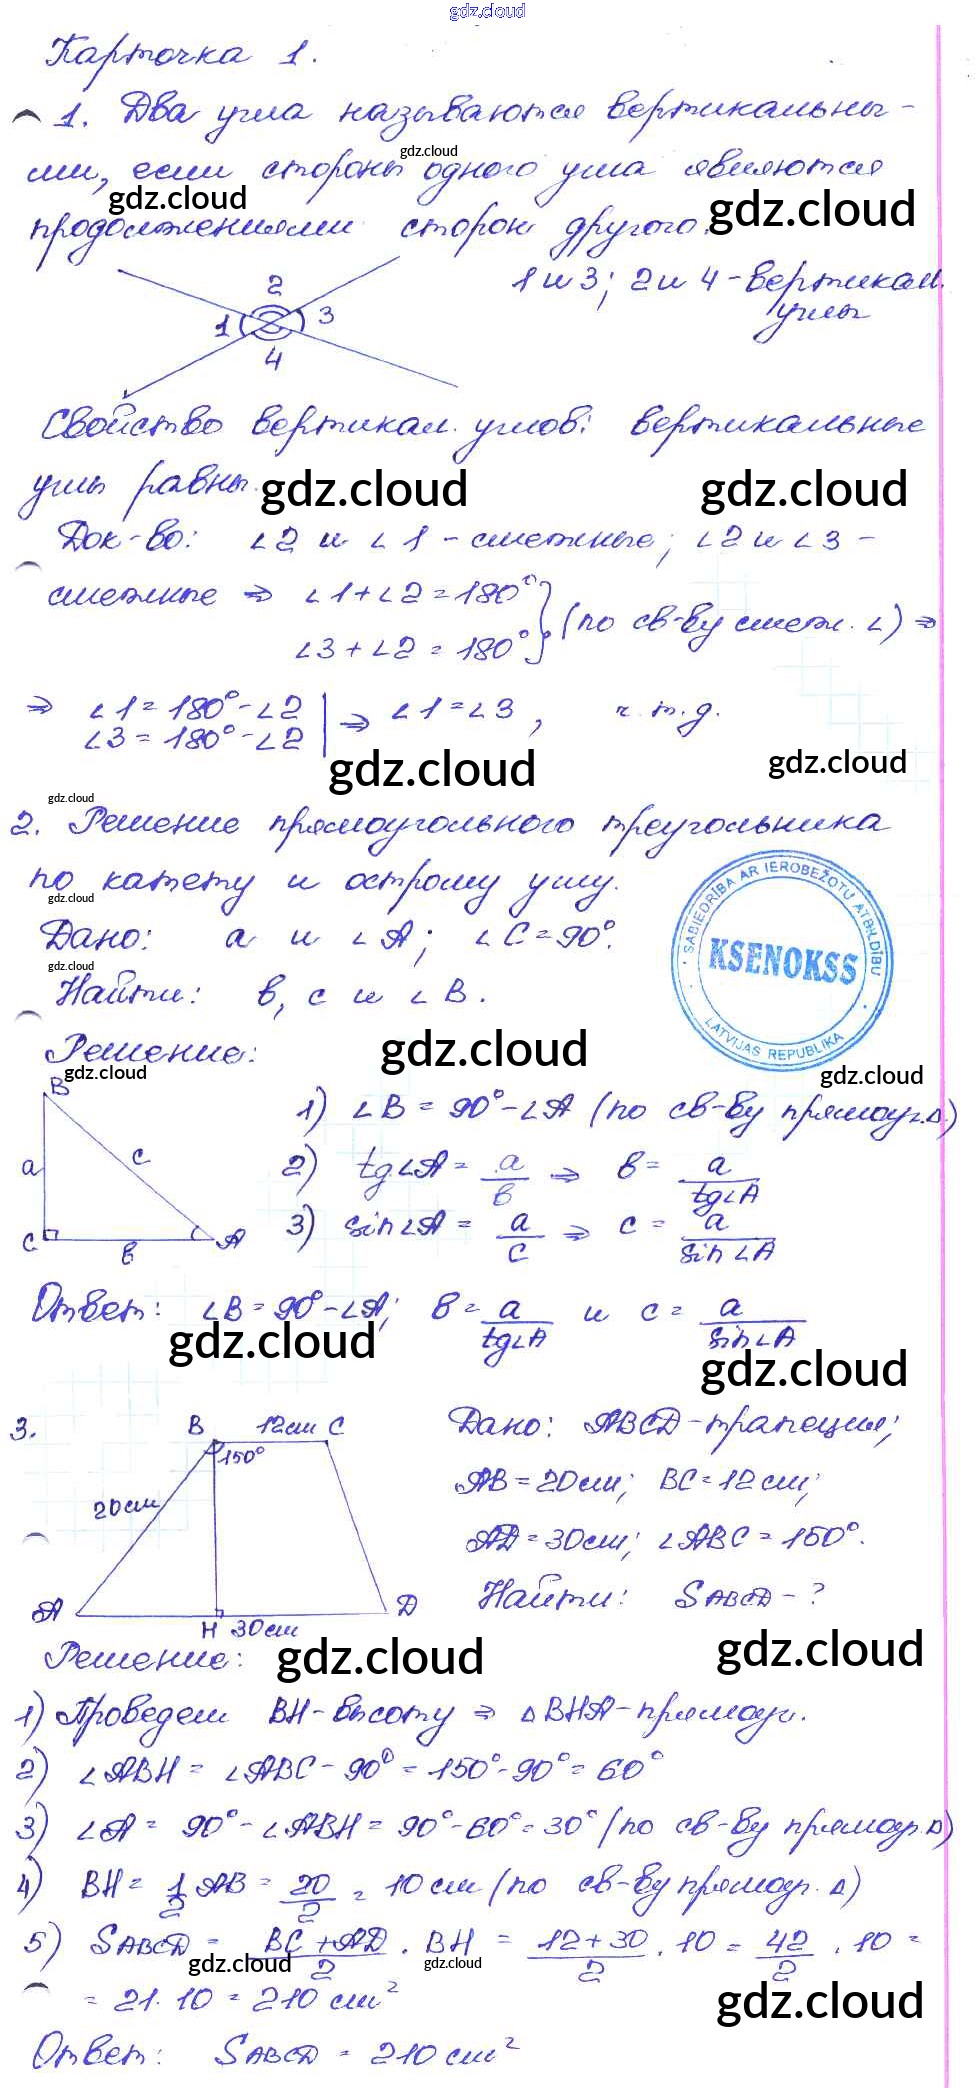 gdz.cloud
Карточка 1.
1. Два угла называются вертикальны-
ми, если стороны одного угла являются
gdz.cloud
gdz.cloud
gdz.cloud
продолжениями сторон другого.
1 и 3; 2 и 4 - вертикал.
углы
2
1
3
4
Свойство вертикал. углов: вертикальные
углы равны.
gdz.cloud
gdz.cloud
Док-во: ∠2 и ∠1 - смежные; ∠2 и ∠3 -
смежные ⇒ ∠1+∠2=180°
∠3+∠2=180° } (по св-ву смеж. ∠) ⇒
⇒ ∠1=180°-∠2
∠3=180°-∠2 | ⇒ ∠1=∠3, ч.т.д.
gdz.cloud
gdz.cloud
gdz.cloud
2. Решение прямоугольного треугольника
по катету и острому углу.
gdz.cloud
Дано: a и ∠A; ∠C=90°.
gdz.cloud
Найти: b, c и ∠B.
SABIEDRĪBA AR IEROBEŽOTU ATBILDĪBU
KSENOKSS
LATVIJAS REPUBLIKA
Решение:
gdz.cloud
gdz.cloud
gdz.cloud
B
a
c
C
b
A
1) ∠B = 90°-∠A (по св-ву прямоуг.Δ)
2) tg∠A = a/b ⇒ b = a/tg∠A
3) sin∠A = a/c ⇒ c = a/sin∠A
Ответ: ∠B=90°-∠A; b = a/tg∠A и c = a/sin∠A
gdz.cloud
gdz.cloud
3.
B 12см C
150°
20см
A
H 30см
D
Дано: ABCD-трапеция;
AB=20см; BC=12см;
AD=30см; ∠ABC=150°.
Найти: SABCD-?
gdz.cloud
gdz.cloud
Решение:
1) Проведем BH-высоту ⇒ ΔBHA-прямоуг.
2) ∠ABH = ∠ABC-90°=150°-90°=60°
3) ∠A = 90°-∠ABH=90°-60°=30° (по св-ву прямоуг.Δ)
4) BH = 1/2 AB = 20/2 = 10см (по св-ву прямоуг.Δ)
5) SABCD = (BC+AD)/2 · BH = (12+30)/2 · 10 = 42/2 · 10 =
gdz.cloud
gdz.cloud
gdz.cloud
= 21·10 = 210 см²
Ответ: SABCD = 210 см²